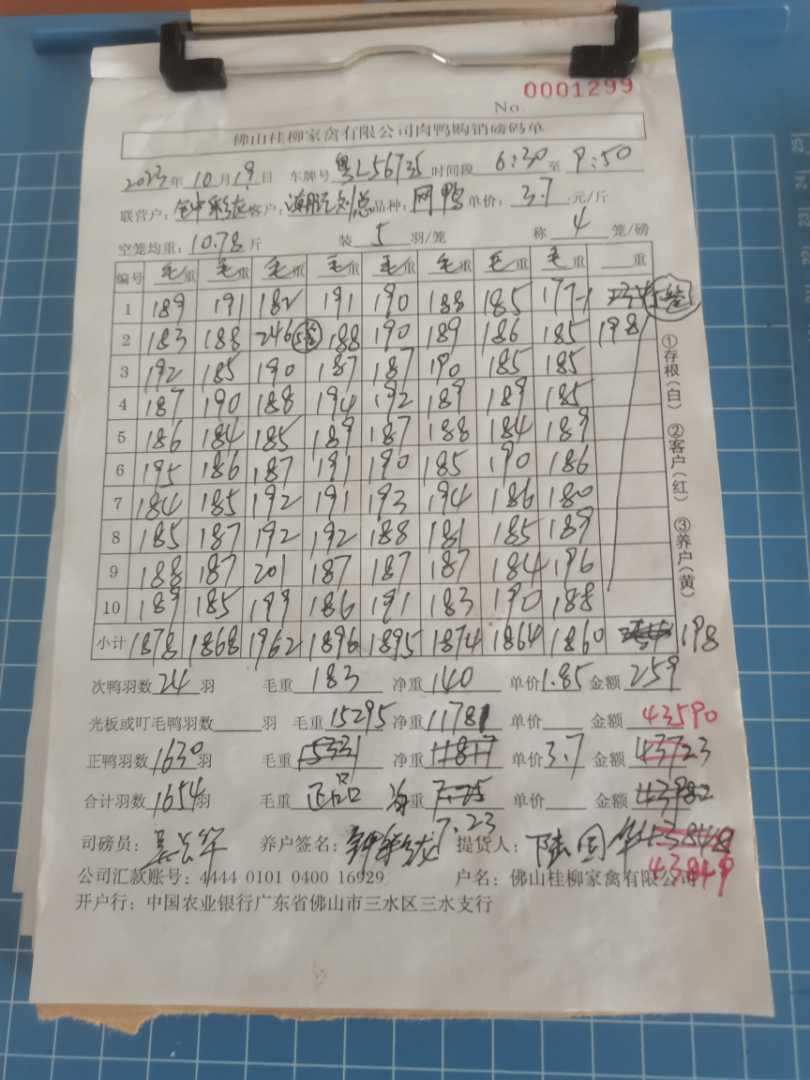 No 0001299
佛山桂柳家禽有限公司肉鸭购销磅码单
2023年 10月 19日 车牌号 粤L56735 时间段 6:30 至 9:50
联营户: 客户: 品种: 网鸭 单价: 3.7 元/斤
空笼均重: 10.78 斤 装 5 羽/笼 称 4 笼/磅
编号 毛重 毛重 毛重 毛重 毛重 毛重 毛重 毛重 重
1 189 191 182 191 190 188 185 177
2 183 188 246 188 190 189 186 185 198
3 192 185 190 187 187 190 185 185
4 187 190 188 194 192 189 189 185
5 186 184 185 189 187 188 184 189
6 195 186 187 191 190 185 190 186
7 184 185 192 191 193 194 186 180
8 185 187 192 192 188 181 185 189
9 188 187 201 187 187 187 184 196
10 189 185 199 186 191 183 190 188
小计 1878 1868 1962 1896 1895 1874 1864 1860 198
①存根(白) ②客户(红) ③养户(黄)
次鸭羽数 24 羽 毛重 183 净重 140 单价 1.85 金额 259
光板或叮毛鸭羽数 羽 毛重 15295 净重 11781 单价 金额 43590
正鸭羽数 1630 羽 毛重 净重 单价 3.7 金额
合计羽数 1654 羽 毛重 正品 净重 单价 金额
7.23
司磅员: 养户签名: 提货人: 陆国华
43849
公司汇款账号: 4444 0101 0400 16929 户名: 佛山桂柳家禽有限公司
开户行: 中国农业银行广东省佛山市三水区三水支行